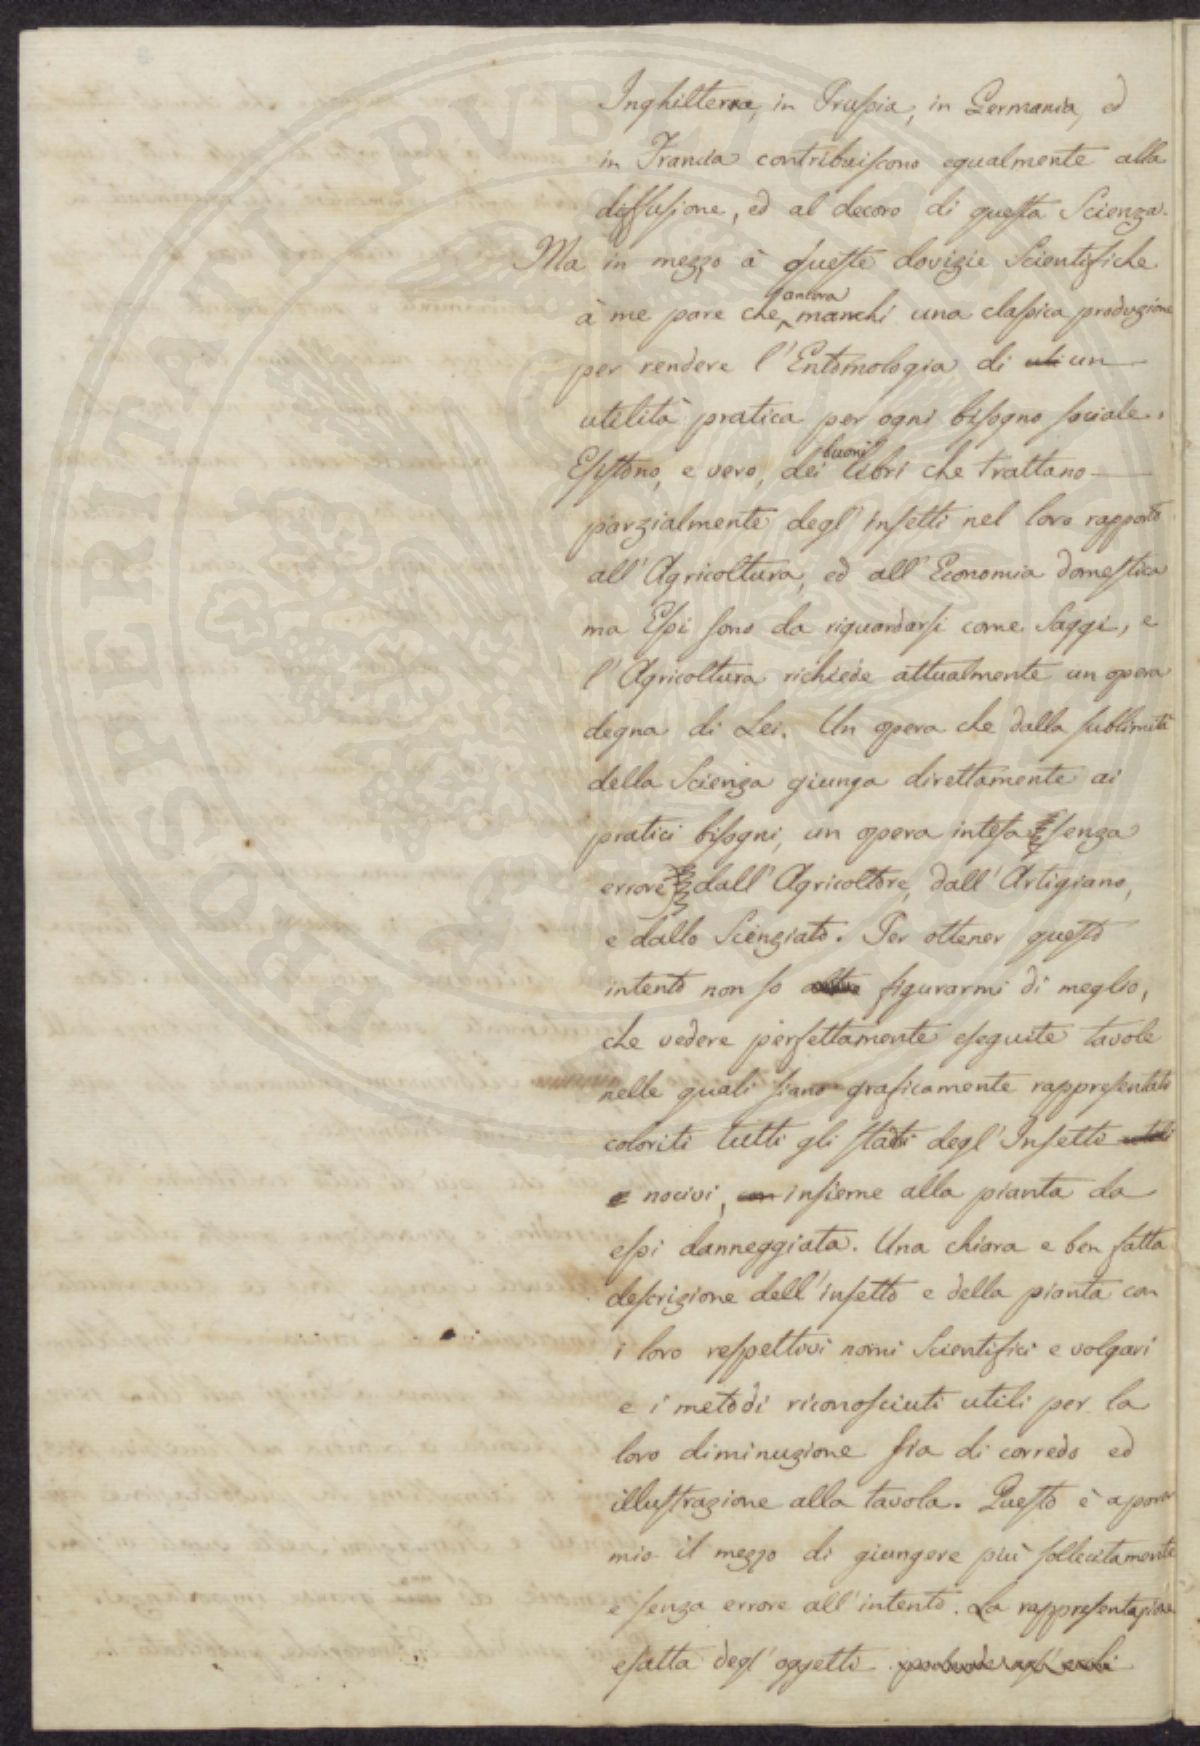 Inghilterra, in Prussia, in Germania, ed
in Francia contribuiscono egualmente alla
diffusione, ed al decoro di questa Scienza.
Ma in mezzo à queste dovizie Scientifiche
à me pare che ancora manchi una classica produzione
per rendere l'Entomologia di un
utilità pratica per ogni bisogno sociale.
Esistono, e vero, dei buoni libri che trattano
parzialmente degl'insetti nel loro rapporto
all'Agricoltura, ed all'Economia domestica
ma Essi sono da riguardarsi come Saggi, e
l'Agricoltura richiede attualmente un opera
degna di Lei. Un opera che dalla sublimità
della Scienza giunga direttamente ai
pratici bisogni, un opera intesa senza
errore dall'Agricoltore, dall'Artigiano,
e dallo Scienziato. Per ottener questo
intento non so figurarmi di meglio,
che vedere perfettamente eseguite tavole
nelle quali siano graficamente rappresentati
coloriti tutti gli stadi degl'Insetti
nocivi, insieme alla pianta da
essi danneggiata. Una chiara e ben fatta
descrizione dell'insetto e della pianta con
i loro respettivi nomi Scientifici e volgari
e i metodi riconosciuti utili per la
loro diminuzione sia di corredo ed
illustrazione alla tavola. Questo è a parer
mio il mezzo di giungere più sollecitamente
e senza errore all'intento. La rappresentazione
esatta degl'oggetti